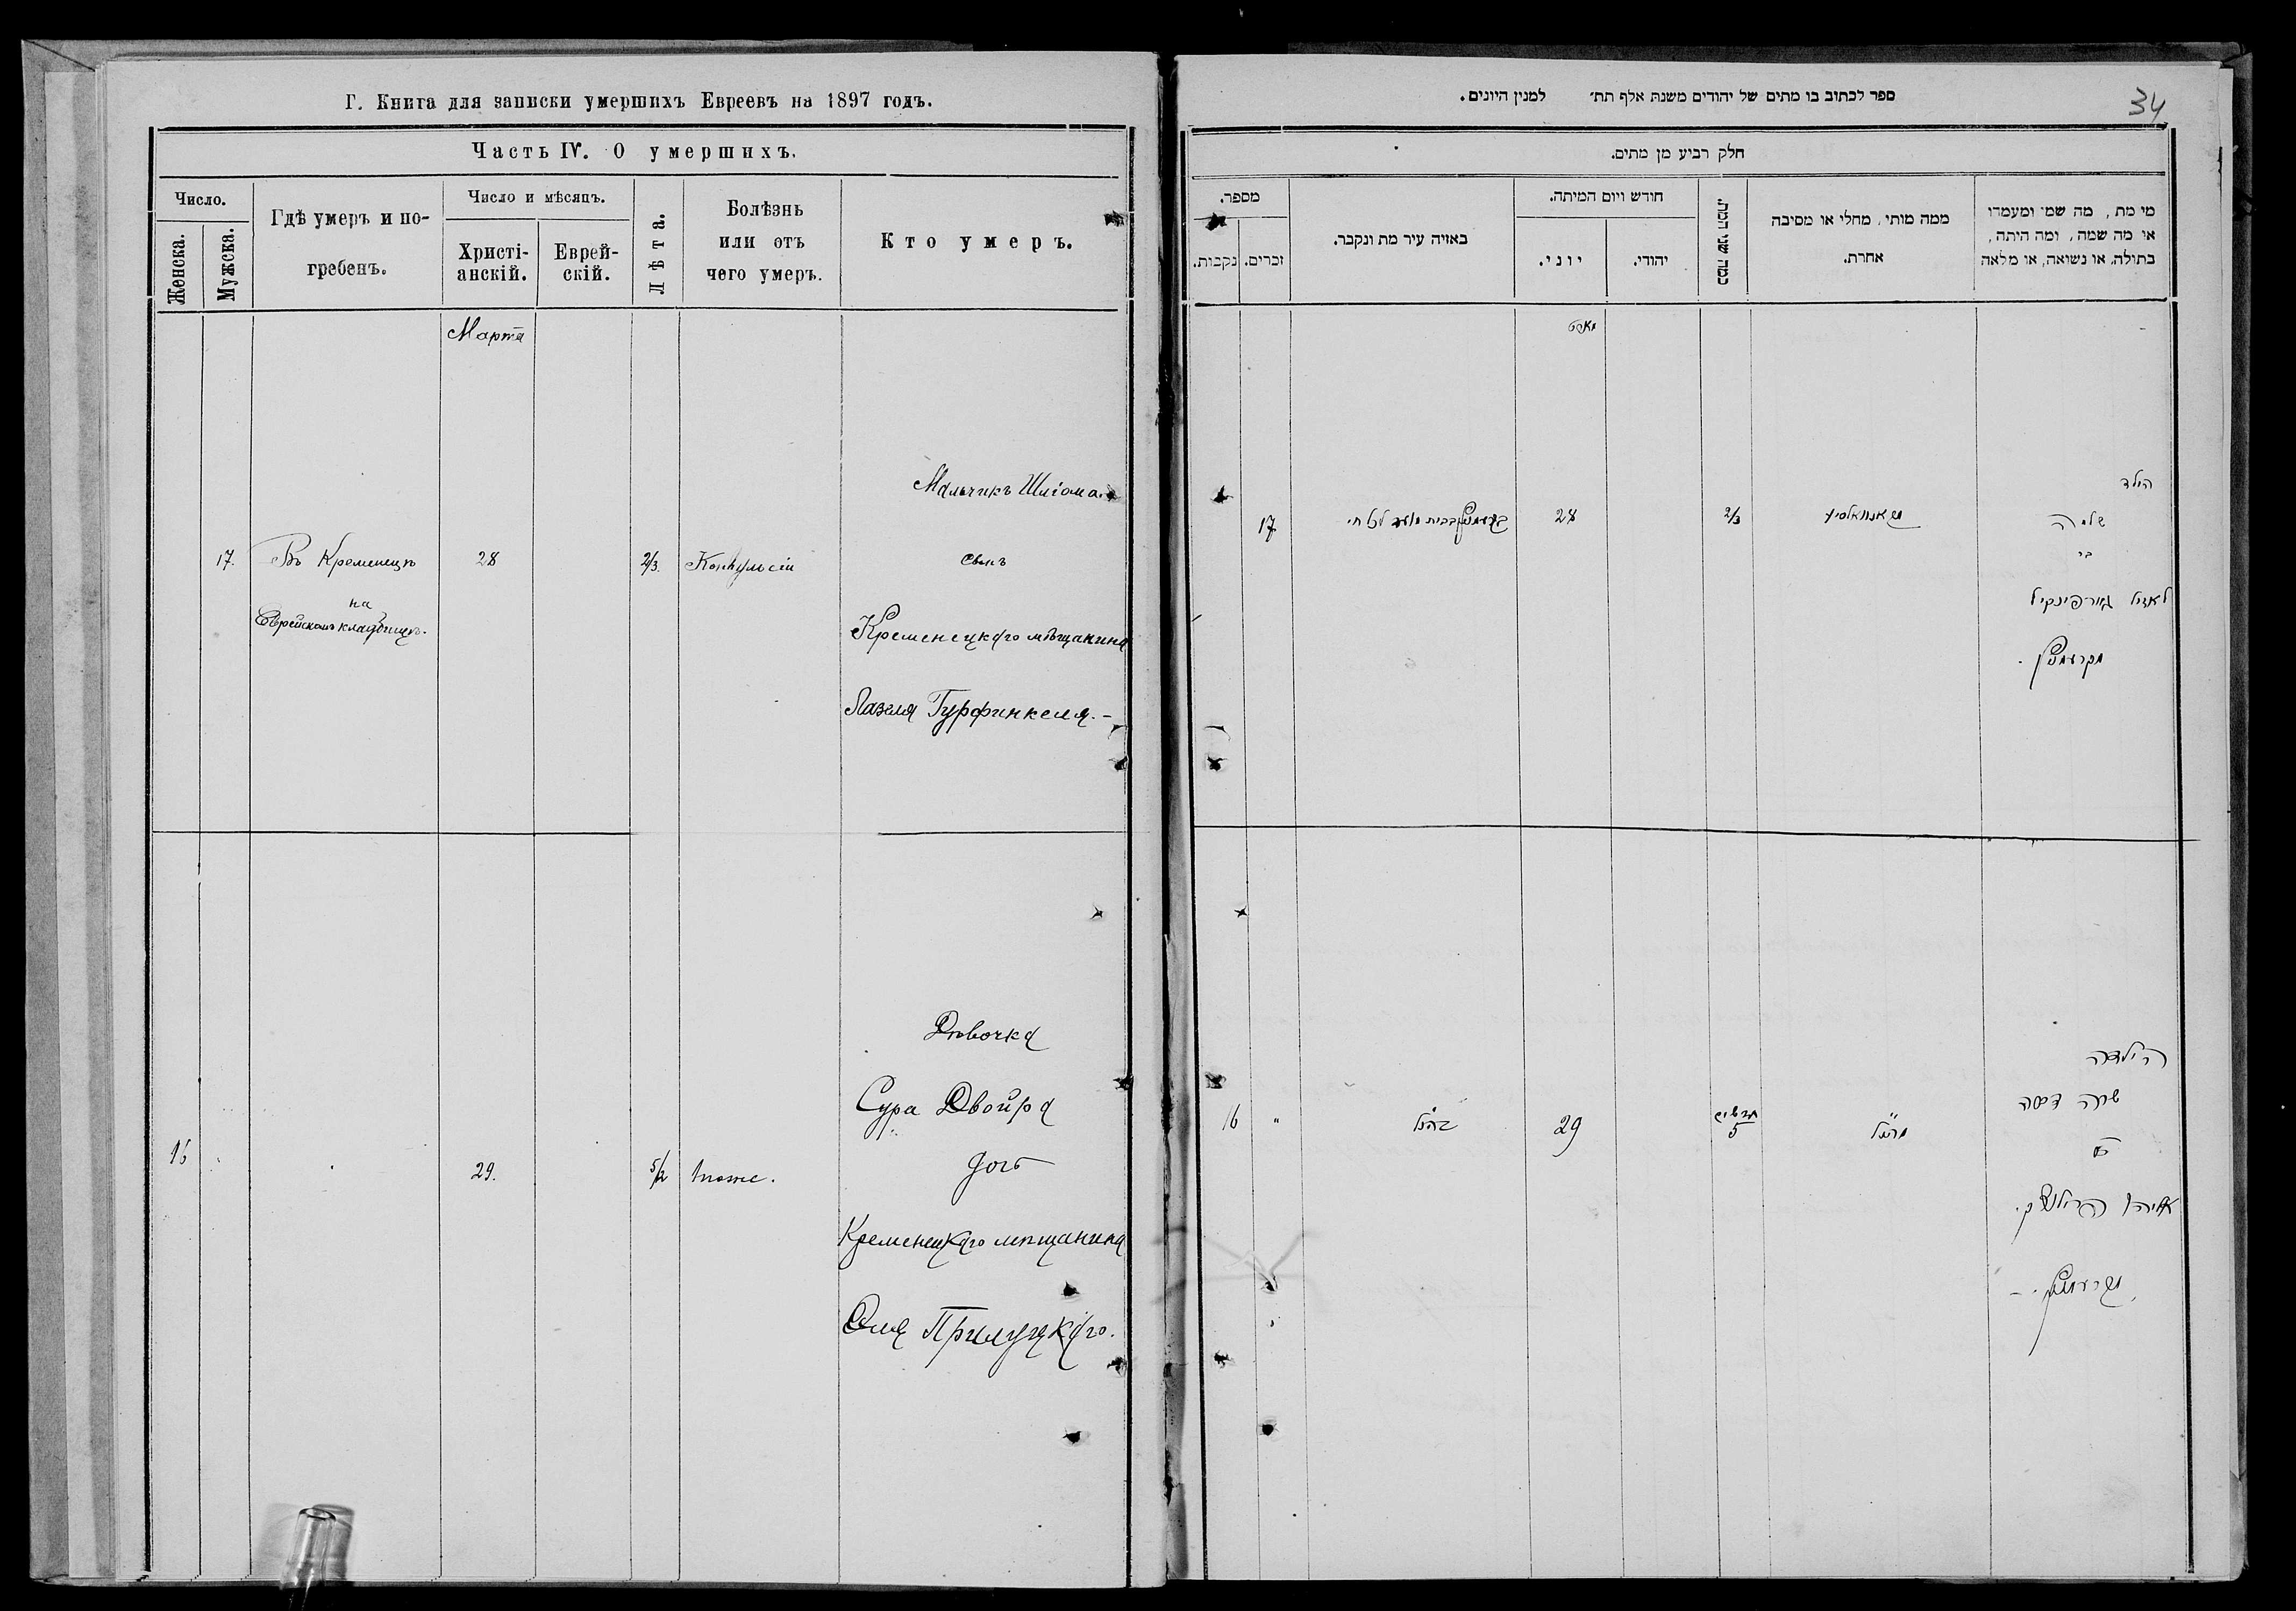 Г. Книга для записки умершихъ Евреевъ на 1897 годъ.
Часть IV. О умершихъ.
Число.
Женска.
Мужска.
Гдѣ умеръ и по-
гребенъ.
Число и мѣсяцъ.
Христі-
анскій.
Еврей-
скій.
Лѣта.
Болѣзнь
или отъ
чего умеръ.
Кто умеръ.
Марта
17.
Въ Кременецѣ
на
Еврейскомъ кладбищѣ.
28
2/3.
Конвульсіи
Мальчикъ Шліома
сынъ
Кременецкаго мѣщанина
Лазеля Гурфинкеля.-
16
29.
5/12
тоже.
Дѣвочка
Сура Двойра
дочь
Кременецкаго мѣщанина
Эля Прилуцкаго.
34
ספר לכתוב בו מתים של יהודים משנת אלף תת׳ למנין היונים.
חלק רביע מן מתים.
מספר.
נקבות.
זכרים.
באזיה עיר מת ונקבר.
חודש ויום המיתה.
יוני.
יהודי.
ממה מותי, מחלי או מסיבה
אחרת.
מי מת, מה שמו ומעמדו
או מה שמה, ומה היתה,
בתולה, או נשואה, או מלאה
17
28
2/3
הילד
שלמה
בן
16
"
כנ"ל
29
5
הילדה
שרה
בת